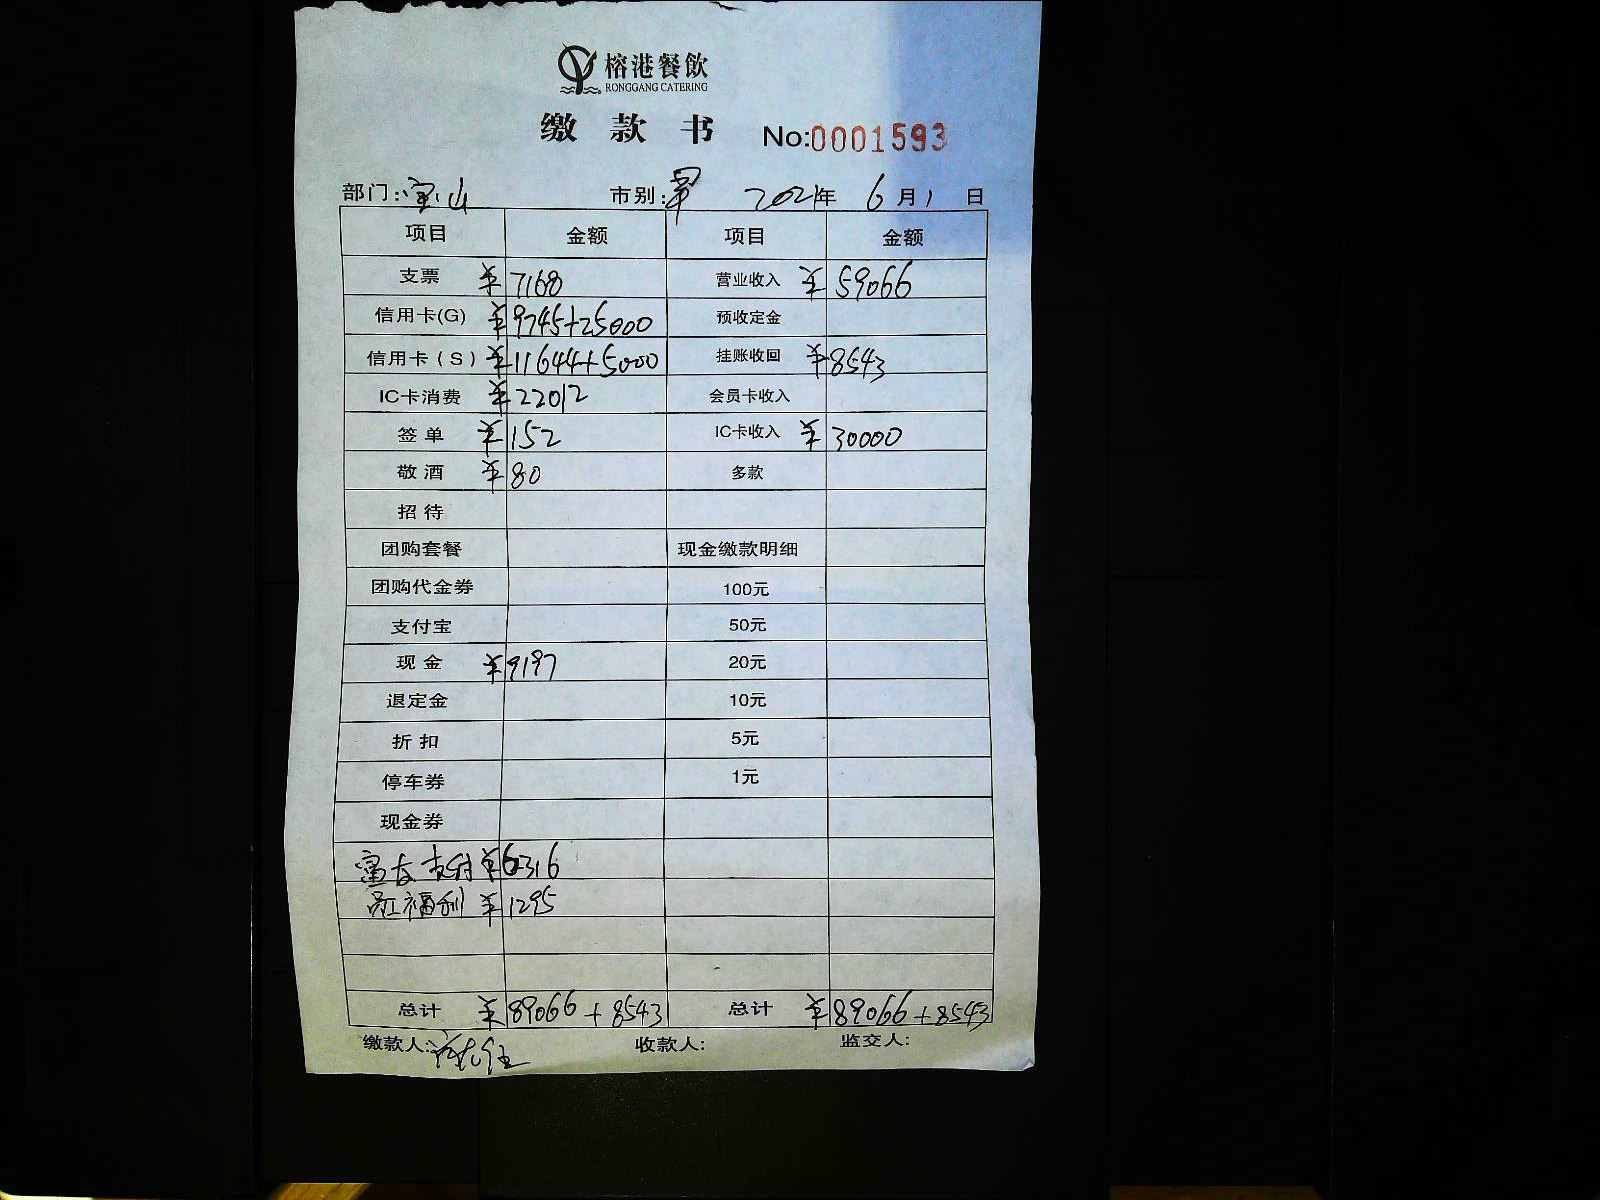 榕港餐飲
RONGGANG CATERING
缴款书 No:0001593
部门:宝山 市别: 2021年 6月1日
项目 金额 项目 金额
支票 ¥7168 营业收入 ¥59066
信用卡(G) ¥9745+25000 预收定金
信用卡(S) ¥11644+5000 挂账收回 ¥8543
IC卡消费 ¥22012 会员卡收入
签单 ¥152 IC卡收入 ¥30000
敬酒 ¥80 多款
招待
团购套餐 现金缴款明细
团购代金券 100元
支付宝 50元
现金 ¥9197 20元
退定金 10元
折扣 5元
停车券 1元
现金券
富友支付 ¥6316
福利 ¥1295
总计 ¥89066+8543 总计 ¥89066+8543
缴款人: 收款人: 监交人: